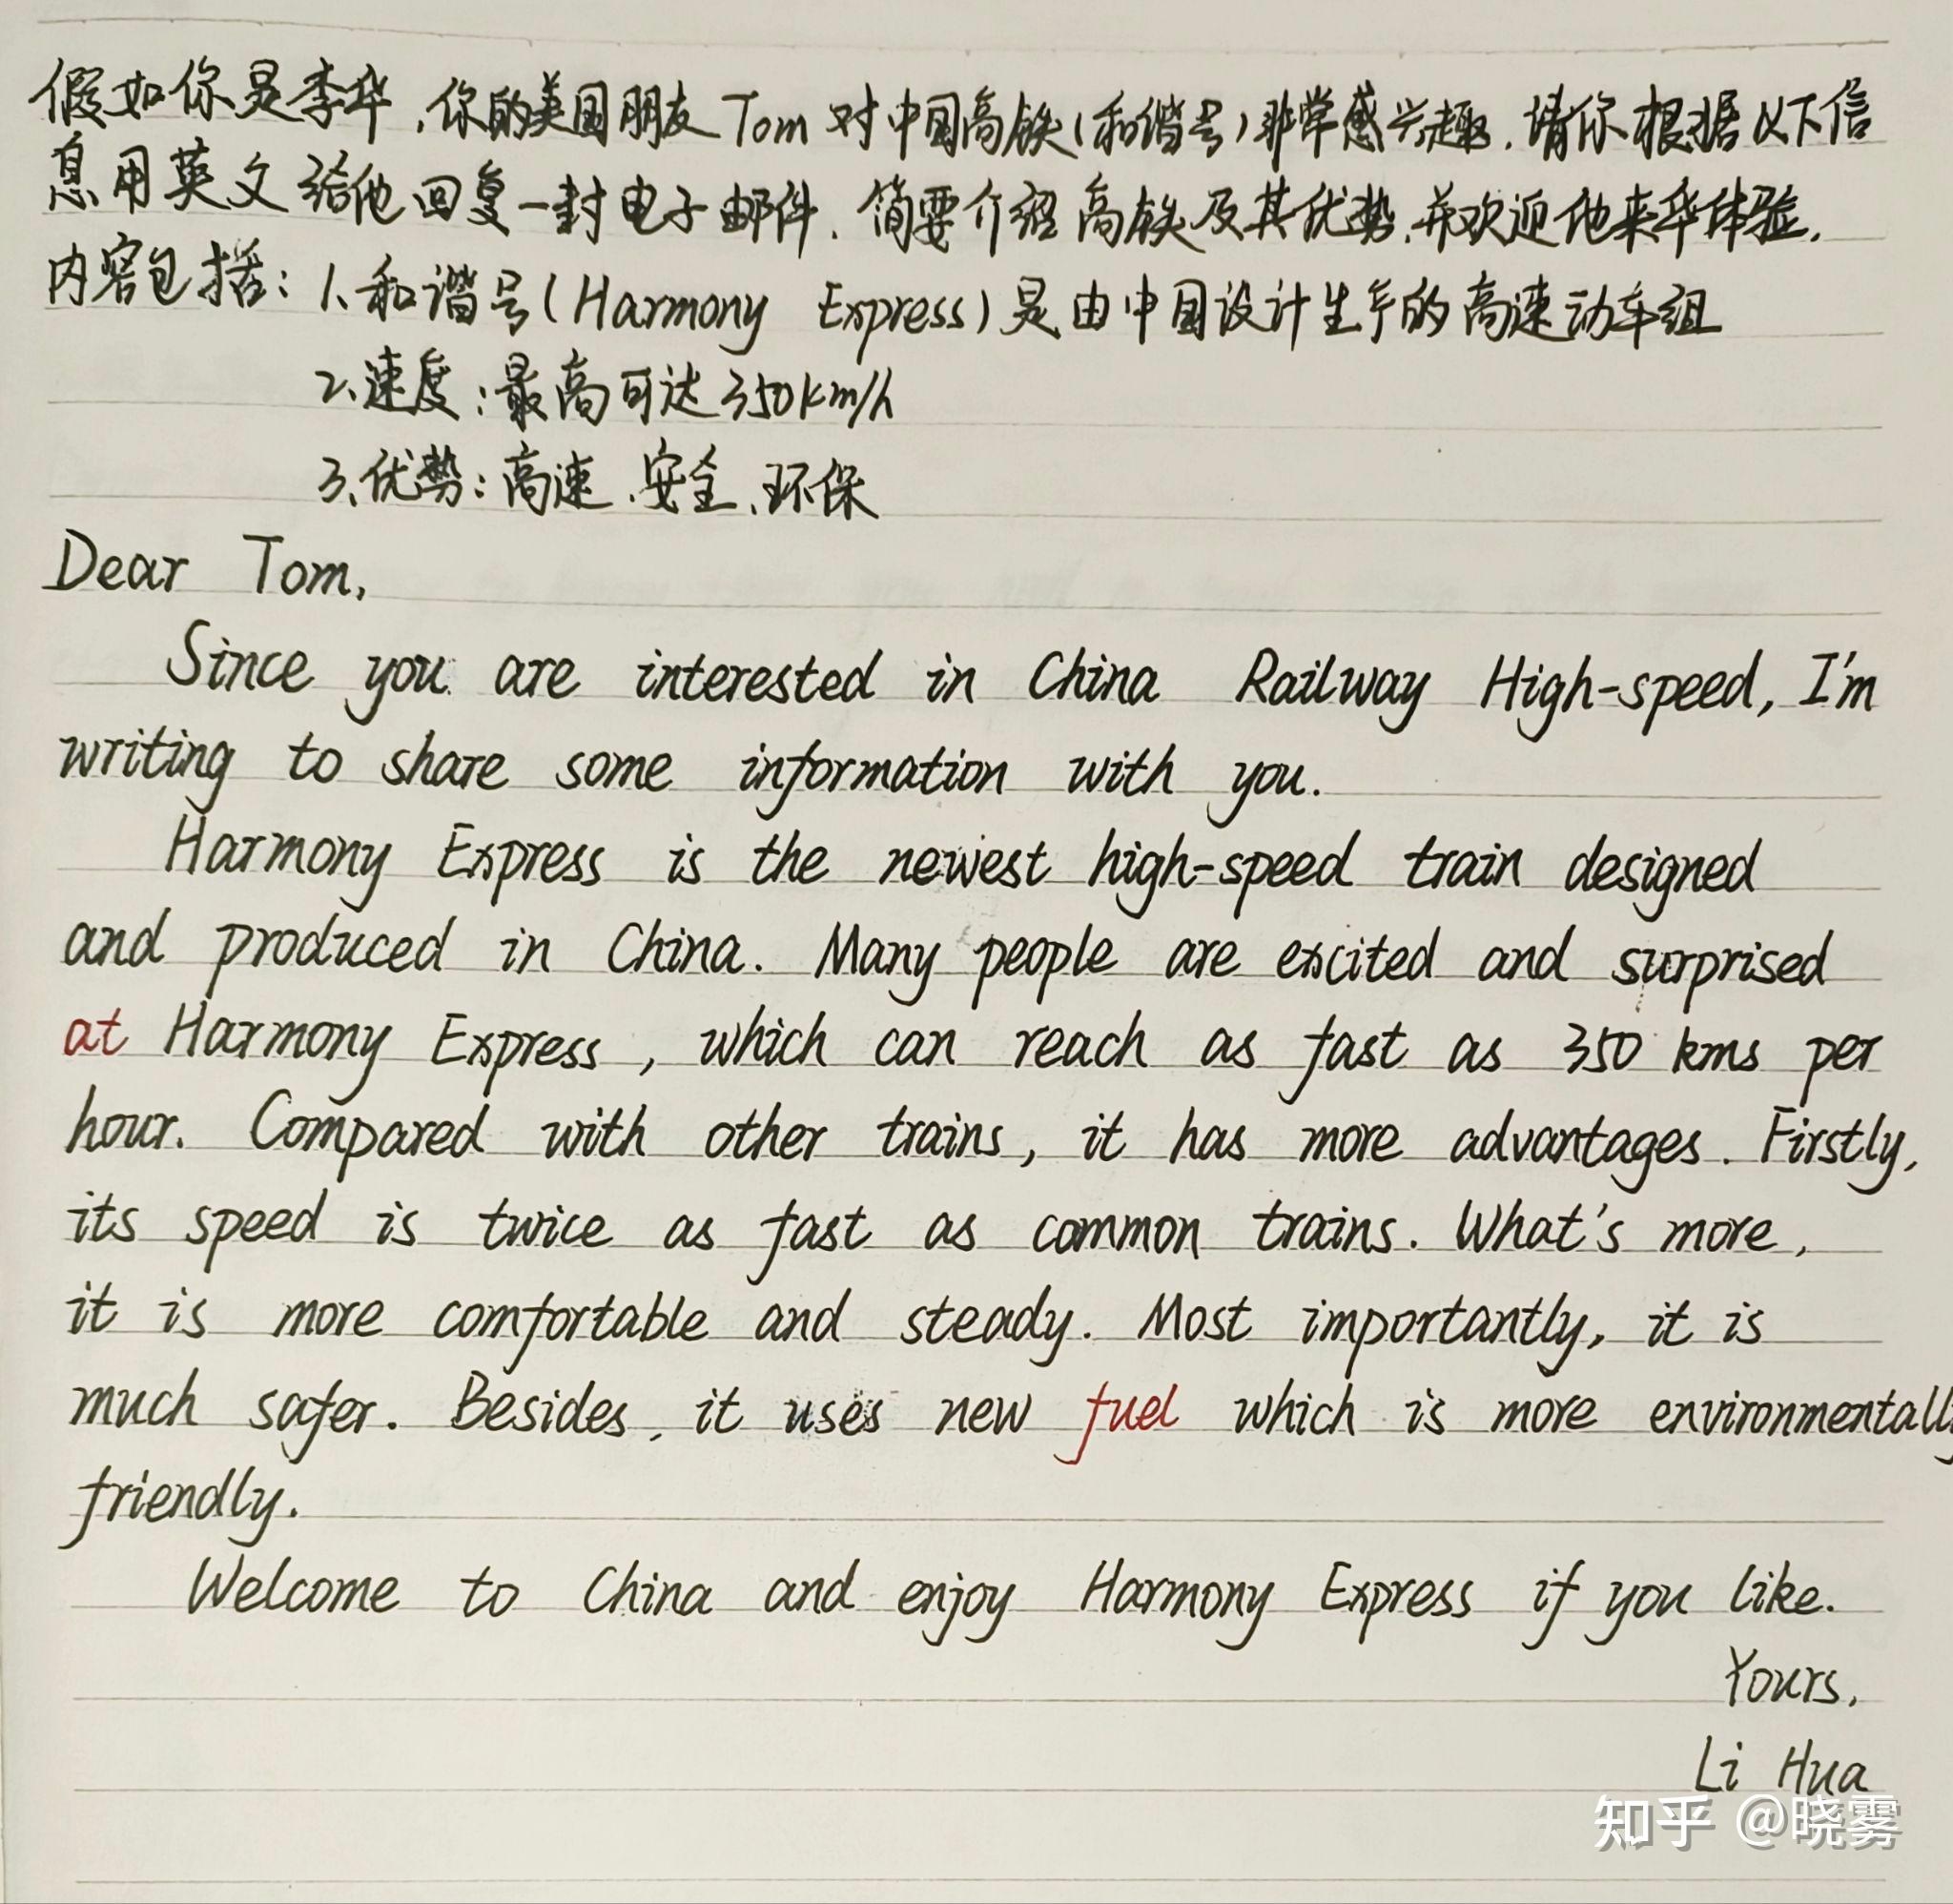 假如你是李华,你的美国朋友Tom对中国高铁(和谐号)非常感兴趣,请你根据以下信
息用英文给他回复一封电子邮件,简要介绍高铁及其优势,并欢迎他来华体验.
内容包括:1、和谐号(Harmony Express)是由中国设计生产的高速动车组
2、速度:最高可达350km/h
3、优势:高速、安全、环保
Dear Tom,
Since you are interested in China Railway High-speed, I'm
writing to share some information with you.
Harmony Express is the newest high-speed train designed
and produced in China. Many people are excited and surprised
at Harmony Express, which can reach as fast as 350 kms per
hour. Compared with other trains, it has more advantages. Firstly,
its speed is twice as fast as common trains. What's more,
it is more comfortable and steady. Most importantly, it is
much safer. Besides, it uses new fuel which is more environmentally
friendly.
Welcome to China and enjoy Harmony Express if you like.
Yours,
Li Hua
知乎 @晓雾